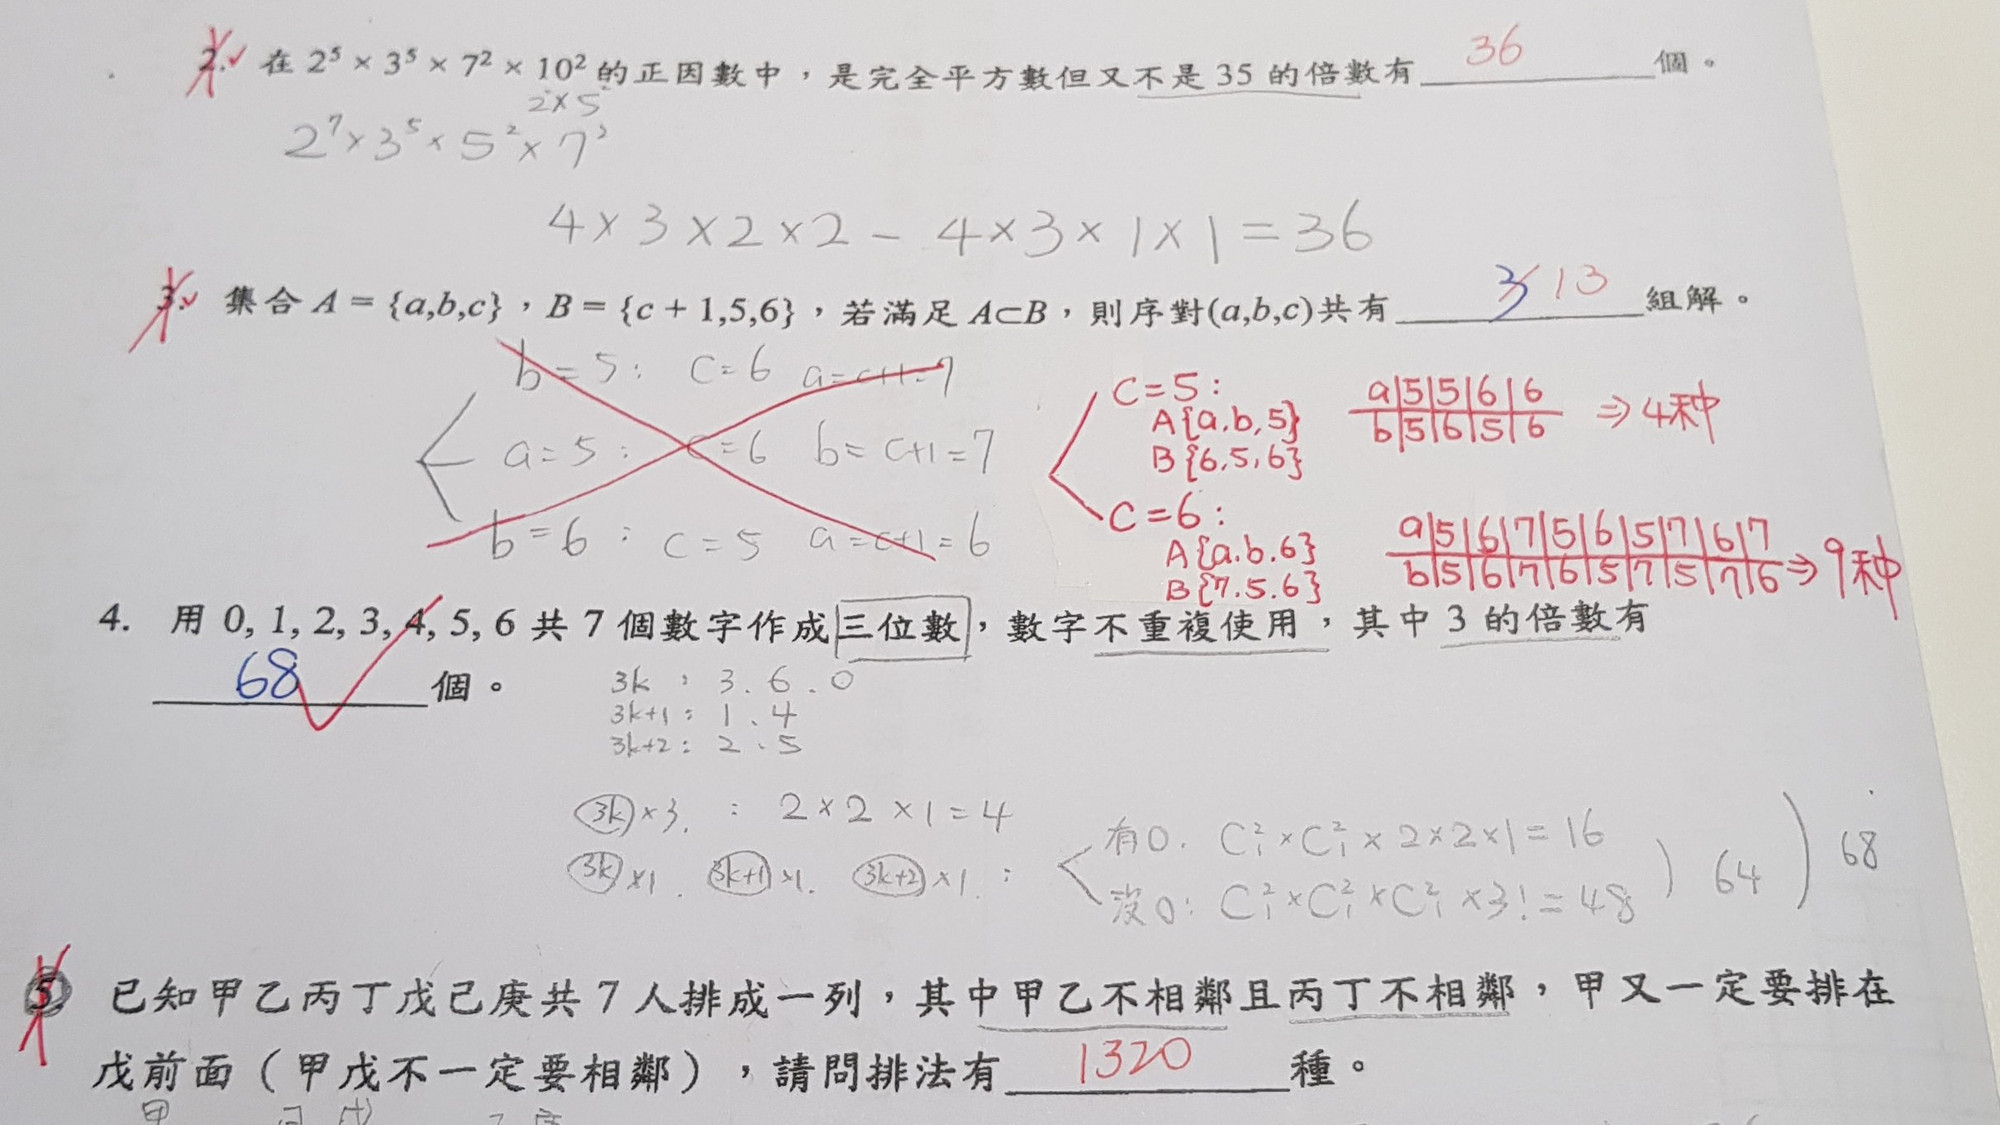 2. 在 2⁵ × 3⁵ × 7² × 10² 的正因數中，是完全平方數但又不是 35 的倍數有 36 個。
2×5
2⁷×3⁵×5²×7²
4×3×2×2 − 4×3×1×1=36
3. 集合 A = {a,b,c}，B = {c + 1,5,6}，若滿足 A⊂B，則序對(a,b,c)共有 3 13 組解。
b=5: c=6 a=c+1=7
a=5: c=6 b=c+1=7
b=6: c=5 a=c+1=6
c=5:
A{a,b,5}
B{6,5,6}
a|5|5|6|6
b|5|6|5|6
⇒4种
c=6:
A{a.b.6}
B{7.5.6}
a|5|6|7|5|6|5|7|6|7
b|5|6|7|6|5|7|5|7|6
⇒9种
4. 用 0, 1, 2, 3, 4, 5, 6 共 7 個數字作成三位數，數字不重複使用，其中 3 的倍數有
68 個。
3k : 3.6.0
3k+1: 1.4
3k+2: 2.5
3k×3. : 2×2×1=4
3k×1. 3k+1×1. 3k+2×1. :
有0. C²₁×C²₁×2×2×1=16
沒0: C²₁×C²₁×C²₁×3!=48
) 64 ) 68
5. 已知甲乙丙丁戊己庚共 7 人排成一列，其中甲乙不相鄰且丙丁不相鄰，甲又一定要排在
戊前面（甲戊不一定要相鄰），請問排法有 1320 種。